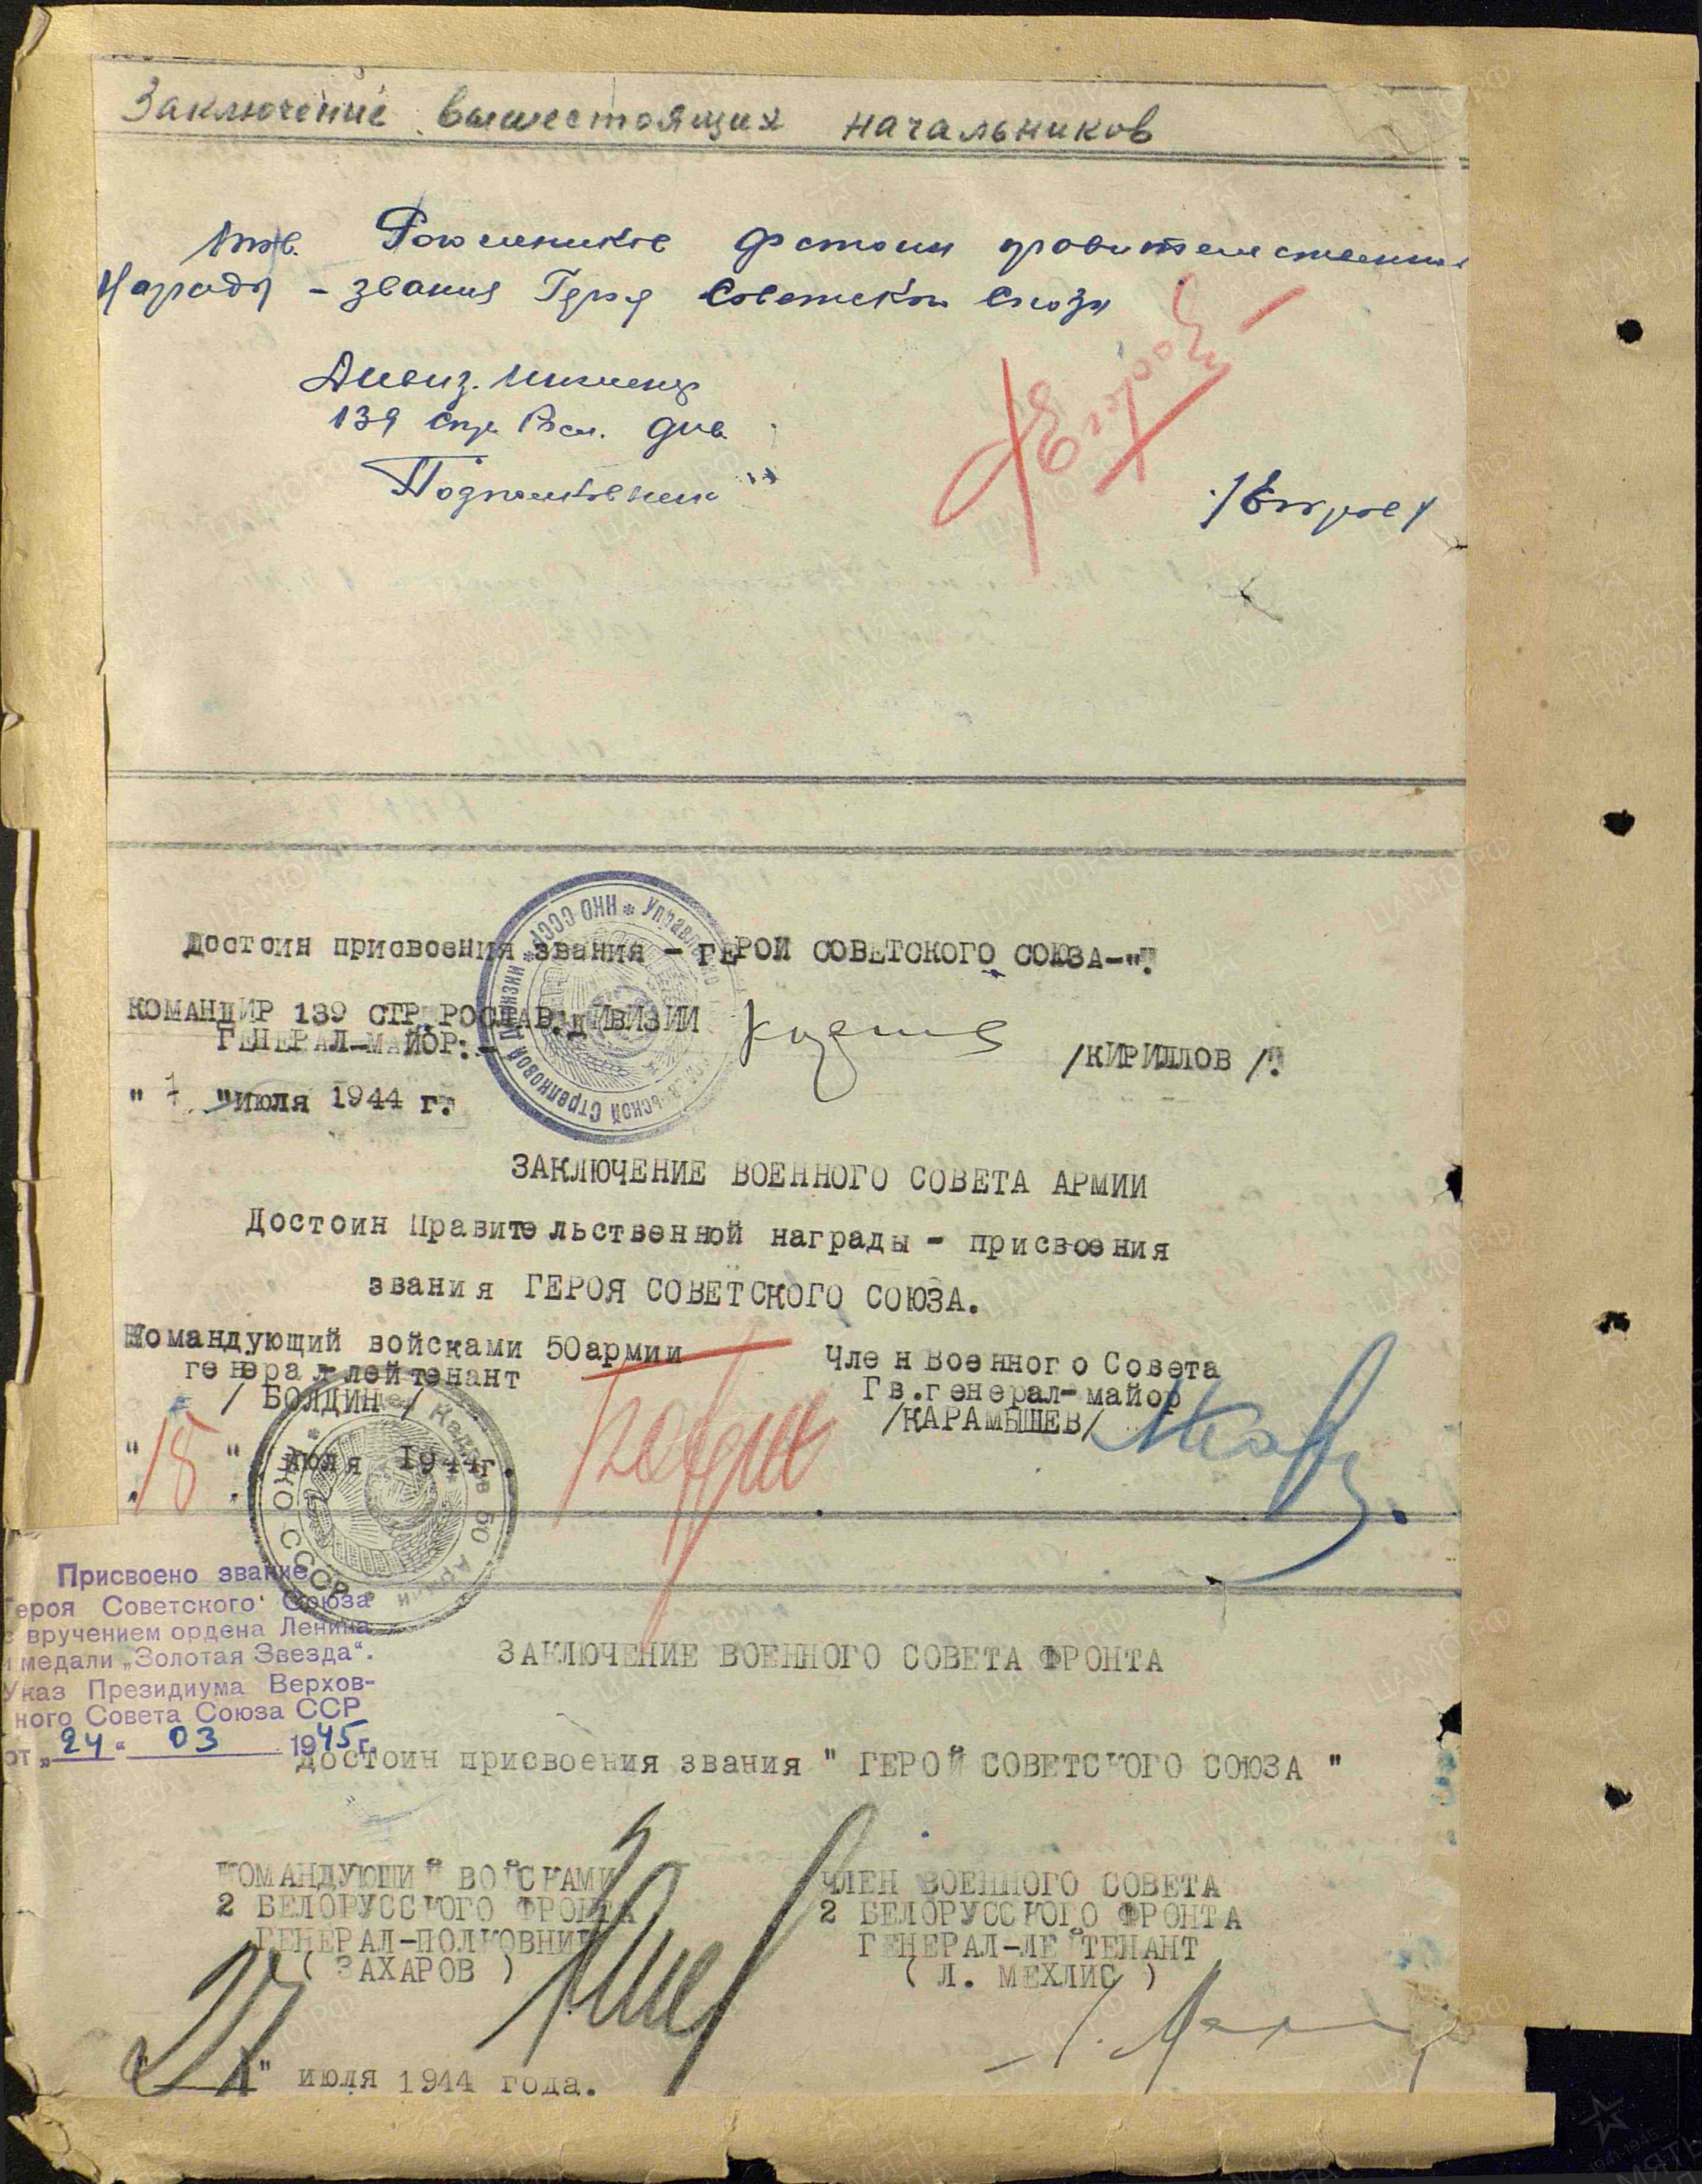 Заключение вышестоящих начальников
тов. достоин правительственной
Награды – звания Героя Советского Союза
Дивиз. Инженер
139 стр. Росл. див.
Подполковник
/Егоров/
Достоин присвоения звания – ГЕРОЙ СОВЕТСКОГО СОЮЗА-".
КОМАНДИР 139 СТР. РОСЛАВ. ДИВИЗИИ
ГЕНЕРАЛ-МАЙОР:-
/КИРИЛЛОВ /.
" 7 "июля 1944 г.
НКО СССР * Управление
Стрелковой Дивизии
ЗАКЛЮЧЕНИЕ ВОЕННОГО СОВЕТА АРМИИ
Достоин Правительственной награды – присвоения
звания ГЕРОЯ СОВЕТСКОГО СОЮЗА.
Командующий войсками 50армии
генерал-лейтенант
/ БОЛДИН /
Член Военного Совета
Гв.генерал-майор
/КАРАМЫШЕВ/
"18" июля 1944г.
НКО СССР * Отдел Кадров 50 Армии
Присвоено звание
Героя Советского Союза
с вручением ордена Ленина
и медали „Золотая Звезда“.
Указ Президиума Верхов-
ного Совета Союза ССР
от „24“ 03 1945г.
ЗАКЛЮЧЕНИЕ ВОЕННОГО СОВЕТА ФРОНТА
достоин присвоения звания " ГЕРОЙ СОВЕТСКОГО СОЮЗА "
КОМАНДУЮЩИЙ ВОЙСКАМИ
2 БЕЛОРУССКОГО ФРОНТА
ГЕНЕРАЛ-ПОЛКОВНИК
( ЗАХАРОВ )
ЧЛЕН ВОЕННОГО СОВЕТА
2 БЕЛОРУССКОГО ФРОНТА
ГЕНЕРАЛ-ЛЕЙТЕНАНТ
( Л. МЕХЛИС )
" " июля 1944 года.